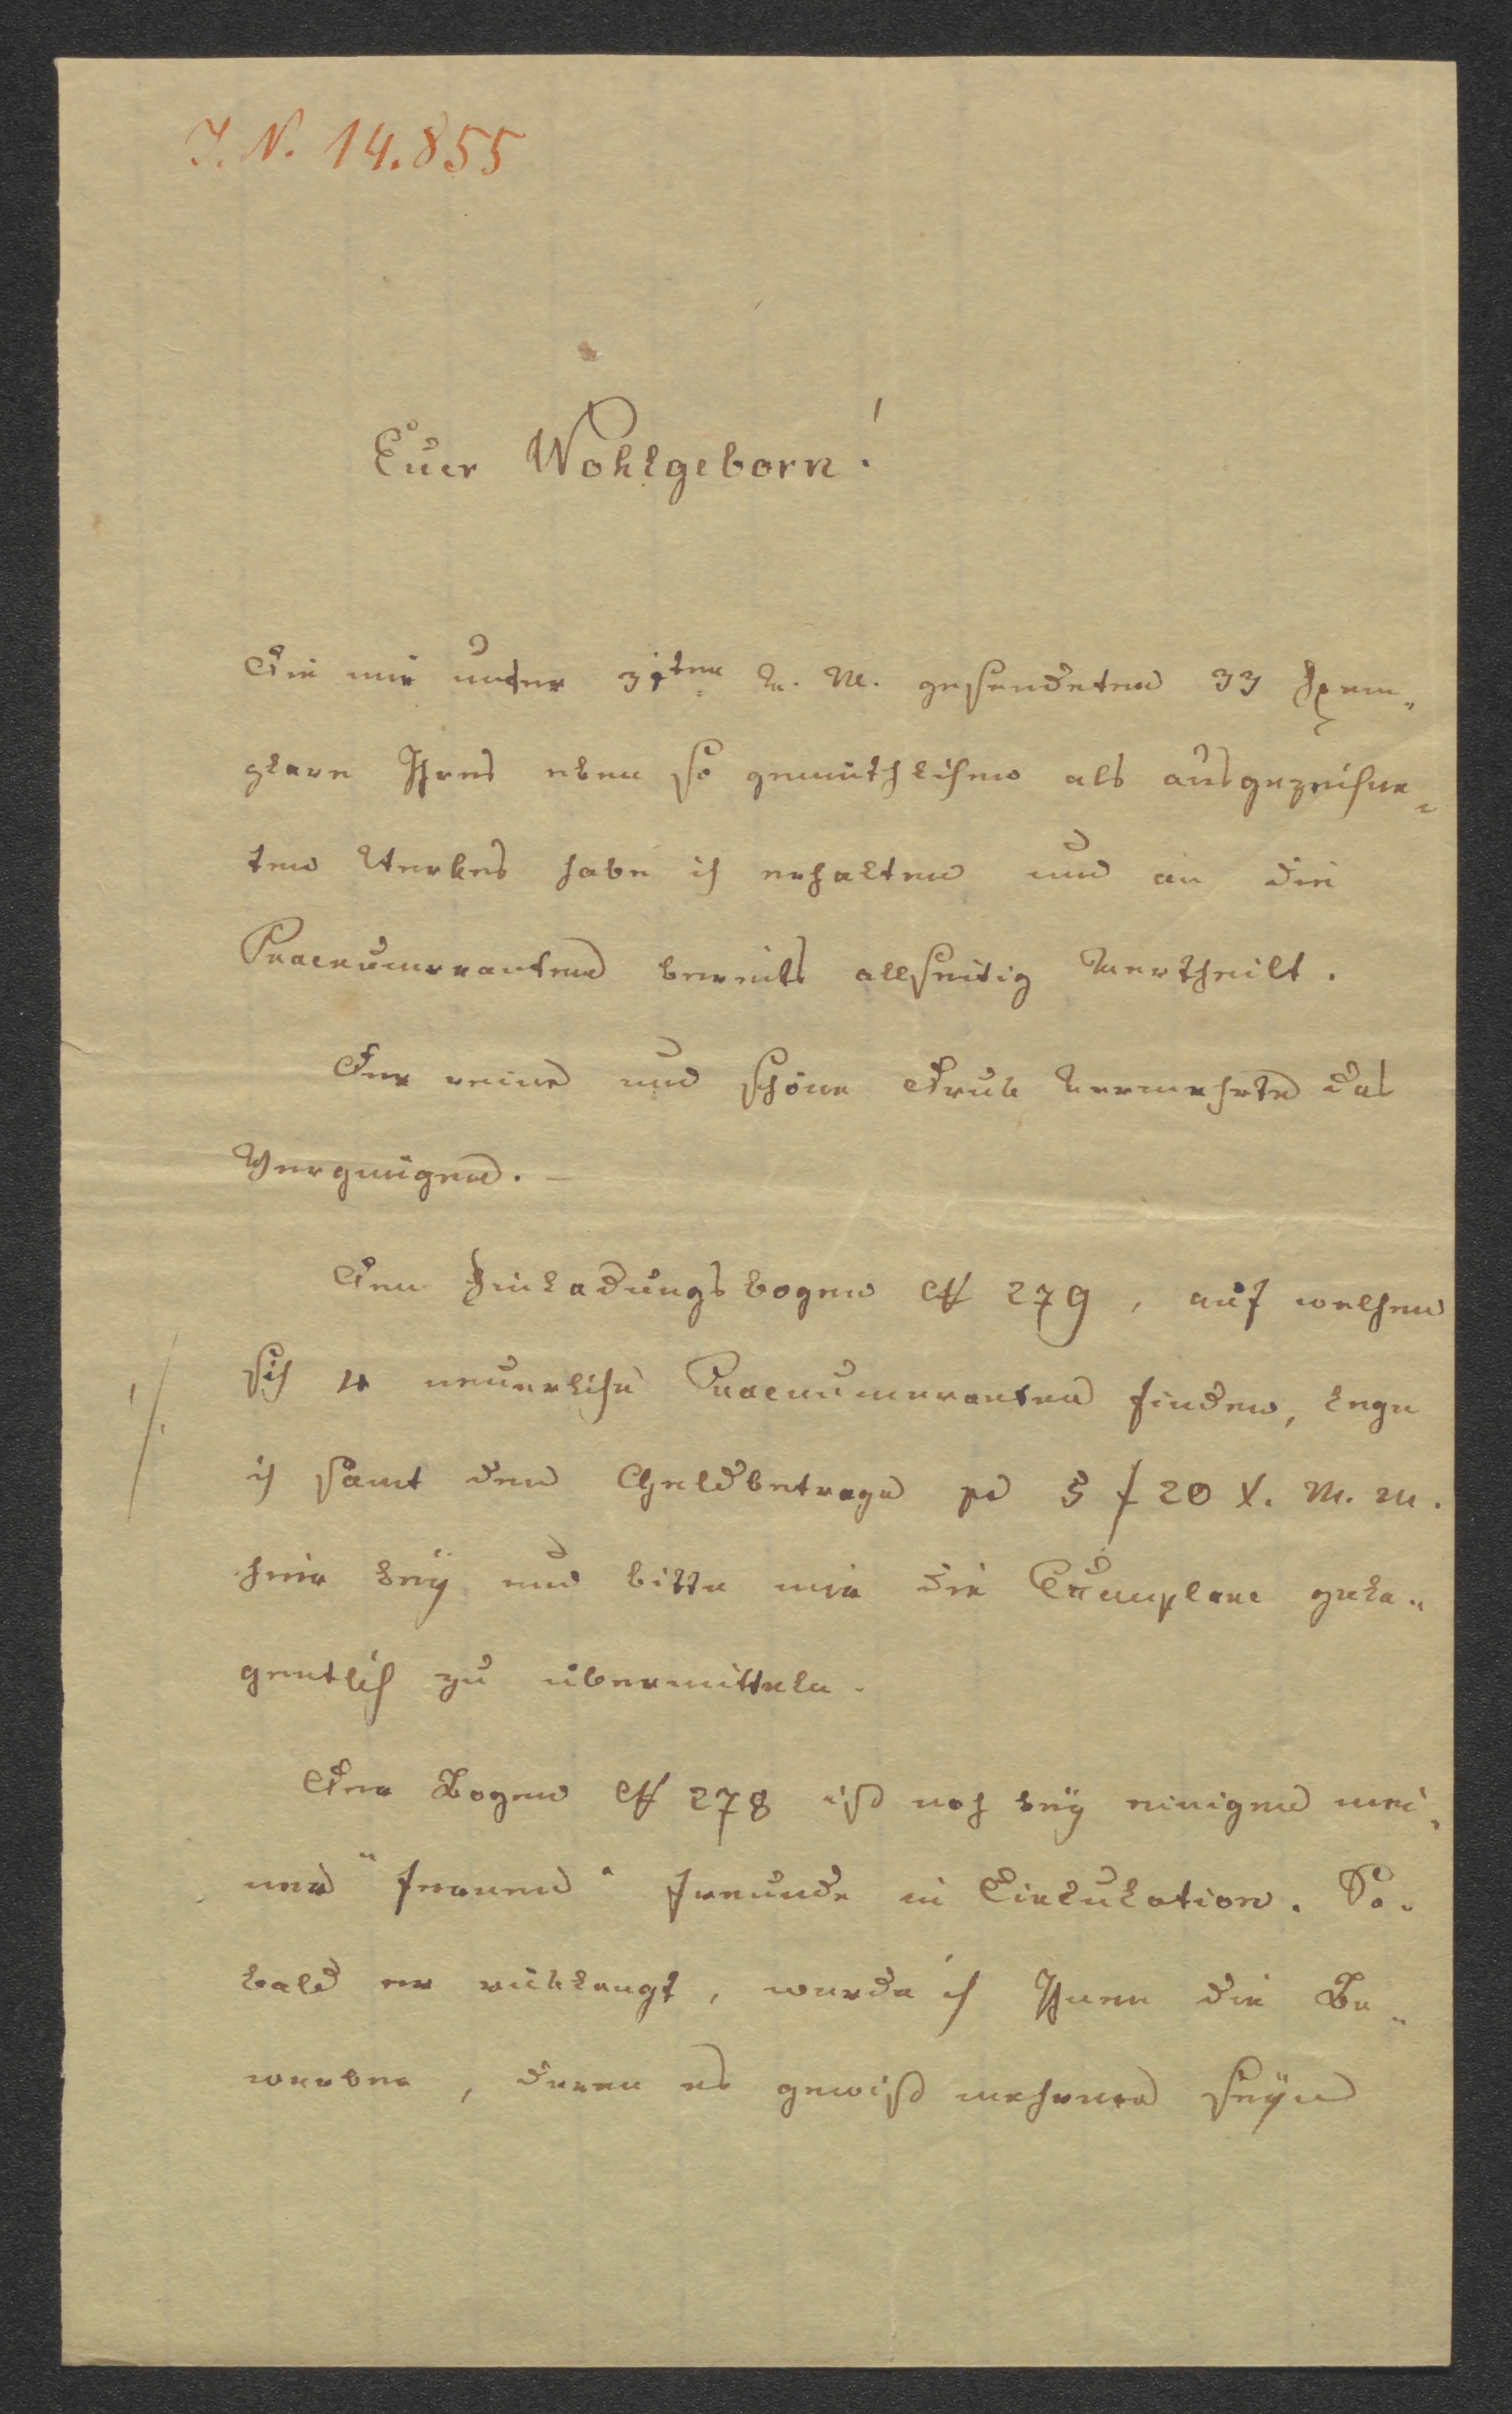 I. N. 14.855
Euer Wohlgeborn!
Die mir unter 31ten v. M. gesendeten 33 Exem„
plare Ihres eben so gemüthlichen als ausgezeichne„
ten Werkes habe ich erhalten und an die
Praenumeranten bereits allseitig vertheilt.
Der reine und schöne Druk vermehrte das
Vergnügen. –
Den Einladungsbogen № 279, auf welchen
sich 4 neuerliche Praenumeranten finden, lege
ich samt den Geldbetrage pr 5 f 20 x. M. M.
hier bey und bitte mir die Exemplare gele„
gentlich zu übermitteln.
Der Bogen № 278 ist noch bey einigen mei„
ner "fernen" Freunde in Cirkulation. So„
bald er rüklangt, werde ich Ihnen die Be„
werber, deren es gewiß mehrere seyn